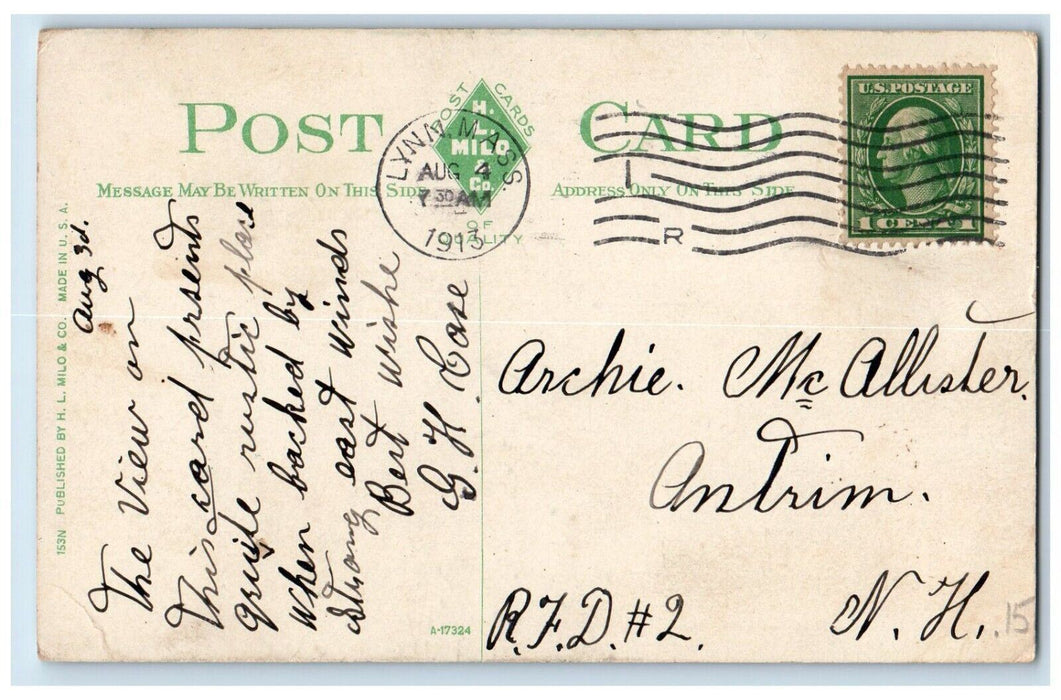 POST CARD
POST CARDS
H. L. MILO & Co
OF QUALITY
MESSAGE MAY BE WRITTEN ON THIS SIDE
ADDRESS ONLY ON THIS SIDE
LYNN, MASS.
AUG 4
7 30 AM
1913
I
R
U.S. POSTAGE
1 CENT 1
153N PUBLISHED BY H. L. MILO & CO. MADE IN U. S. A.
Aug 3d.
The View on
This card prsents
quite rustic place
when backed by
strong east winds
Best wishe
G. H. Case
Archie. McAllister.
Antrim.
R.F.D. #2. N. H.
15
A-17324